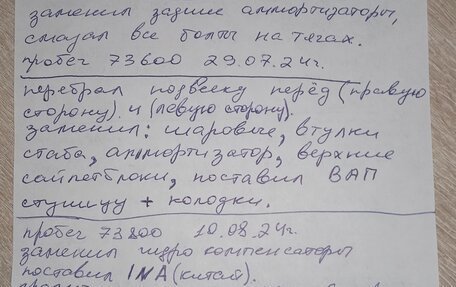 заменил задние аммортизаторы,
смазал все болты на тягах.
пробег 73600 29.07.24г.
перебрал подвеску перёд (правую
сторону). и (левую сторону).
заменил: шаровые, втулки
стаба, аммортизатор, верхние
сайлетблоки, поставил ВАП
ступицу + колодки.
пробег 73800 10.08.24г.
заменил гидро компенсаторы
поставил INA (китай).